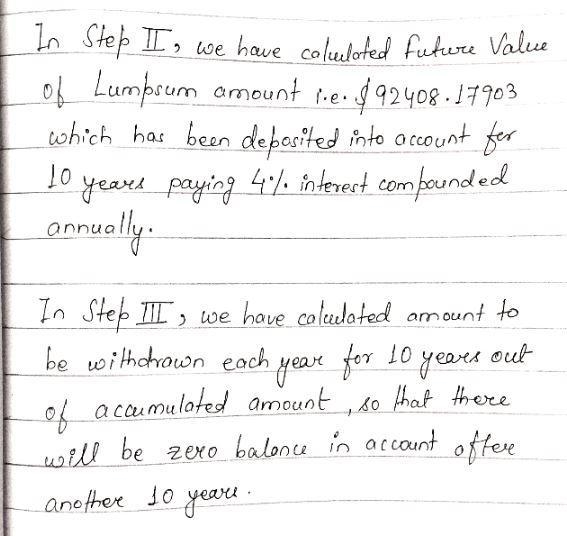 In Step II, we have calculated Future Value
of Lumpsum amount i.e. $92408.17903
which has been deposited into account for
10 years paying 4% interest compounded
annually.
In Step III, we have calculated amount to
be withdrawn each year for 10 years out
of accumulated amount, so that there
will be zero balance in account after
another 10 years.